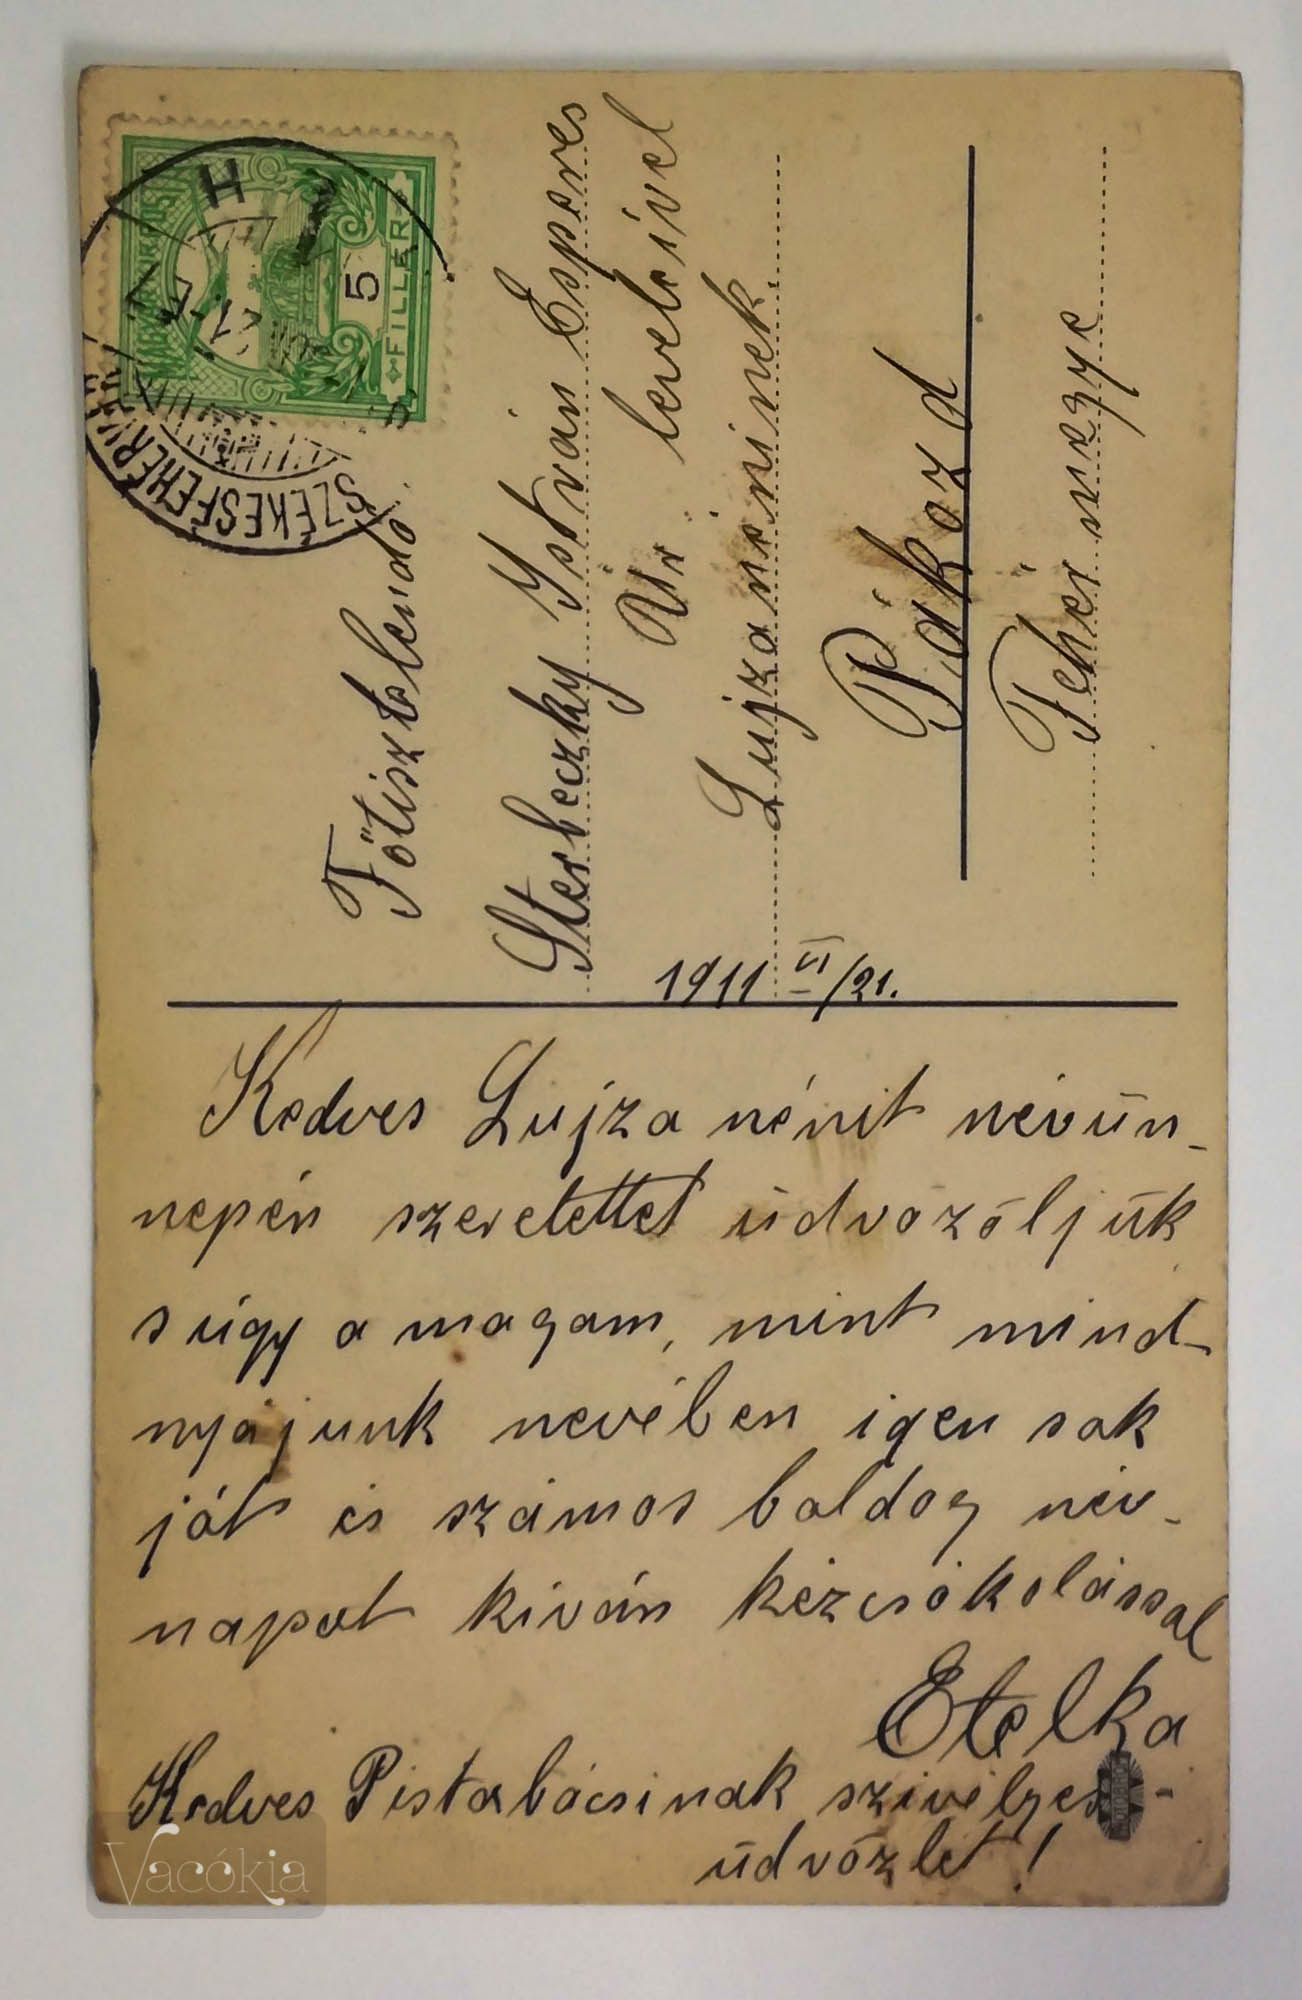 MAGYAR KIR. POSTA
5
FILLÉR
SZÉKESFEHÉRVÁR
Főtisztelendő
Sterbeczky István Esperes
Úr leveleível
Lujzanéninek.
Pákozd
Fehérmegye
1911 VI/21.
Kedves Lujza nénit névün-
nepén szeretettel üdvözöljük
s úgy a magam, mint mind-
nyájunk nevében igen sok
jót és számos boldog név-
napot kíván kézcsókolással
Etelka
Kedves Pistabácsinak szivélyes
üdvözlet!
Vacókia